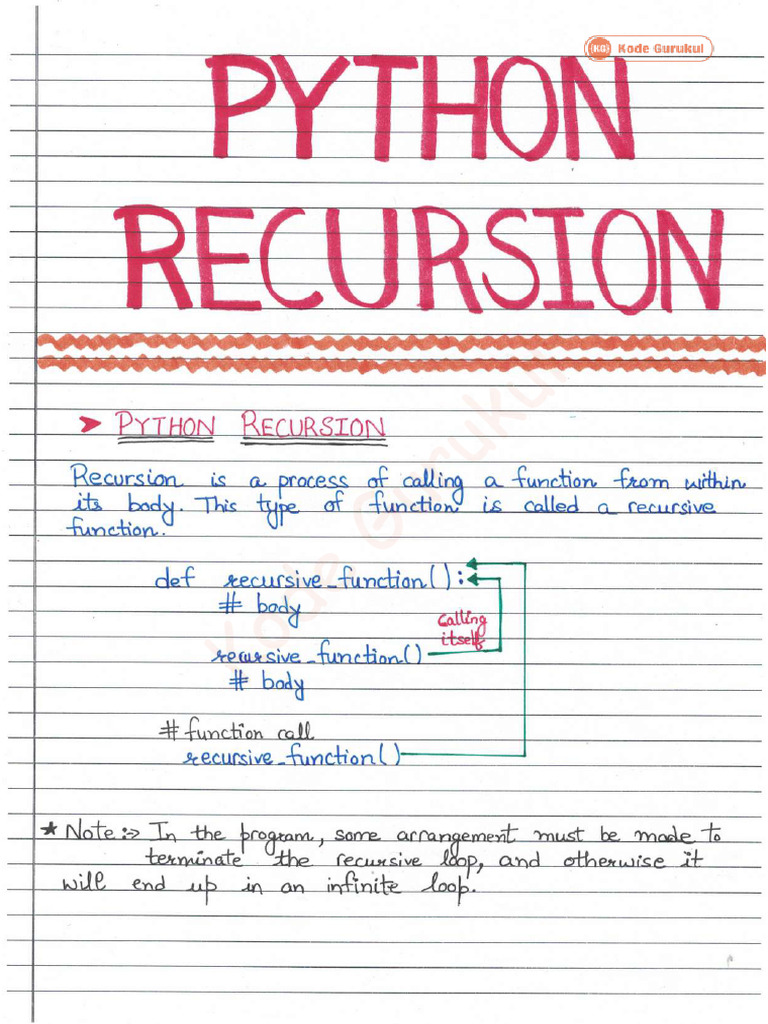 KG Kode Gurukul
PYTHON
RECURSION
➤ PYTHON RECURSION
Recursion is a process of calling a function from within
its body. This type of function is called a recursive
function.
def recursive_function():
# body
calling
itself
recursive_function()
# body
# function call
recursive_function()
★ Note:-> In the program, some arrangement must be made to
terminate the recursive loop, and otherwise it
will end up in an infinite loop.
Kode Gurukul